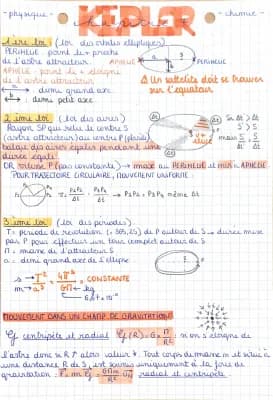 - physique -
- chimie -
KEPLER
chapitre
1 ère loi (loi des orbites elliptiques)
PÉRIHÉLIE : point le + proche
de l'astre attracteur.
PÉRIHÉLIE
APHÉLIE
APHÉLIE : point le + éloigné
de l'astre attracteur
a → demi grand axe
b → demi petit axe
⚠ Un satellite doit se trouver
sur l'équateur
2 ième loi (loi des aires)
Rayon SP qui relie le centre S
(astre attracteur) au centre P (planète)
balaye des aires égales pendant une
durée égale.
OR vitesse P (pas constante) → max au PÉRIHÉLIE et min à APHÉLIE
POUR TRAJECTOIRE CIRCULAIRE, MOUVEMENT UNIFORME
→ P1P2 = P3P4 même Δt
3 ième loi (loi des périodes).
T = période de révolution (= 365,25) de P autour de S → durée mise
par P pour effectuer un tour complet autour de S
M = masse de l'astre
a = demi grand axe de l'ellipse
T² / a³ = 4π² / GM = CONSTANTE
kg
MOUVEMENT DANS UN CHAMP DE GRAVITATION
centripète et radial
si on s'éloigne de
l'astre donc si R ↗ alors valeur ↘. Tout corps de masse m et situé à
une distance R de S, est soumis uniquement à la force de
gravitation :
radial et centripète